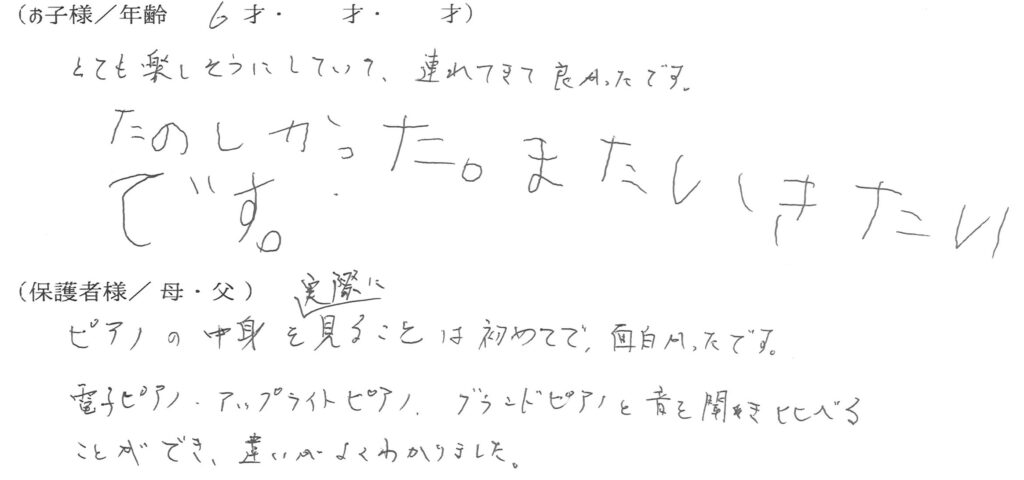 (お子様／年齢　6才・　　才・　　才)
とても楽しそうにしていて、連れてきて良かったです。
たのしかった。またいきたい
です。
(保護者様／母・父)
実際に
ピアノの中身を見ることは初めてで、面白かったです。
電子ピアノ・アップライトピアノ、グランドピアノと音を聞き比べる
ことができ、違いがよくわかりました。